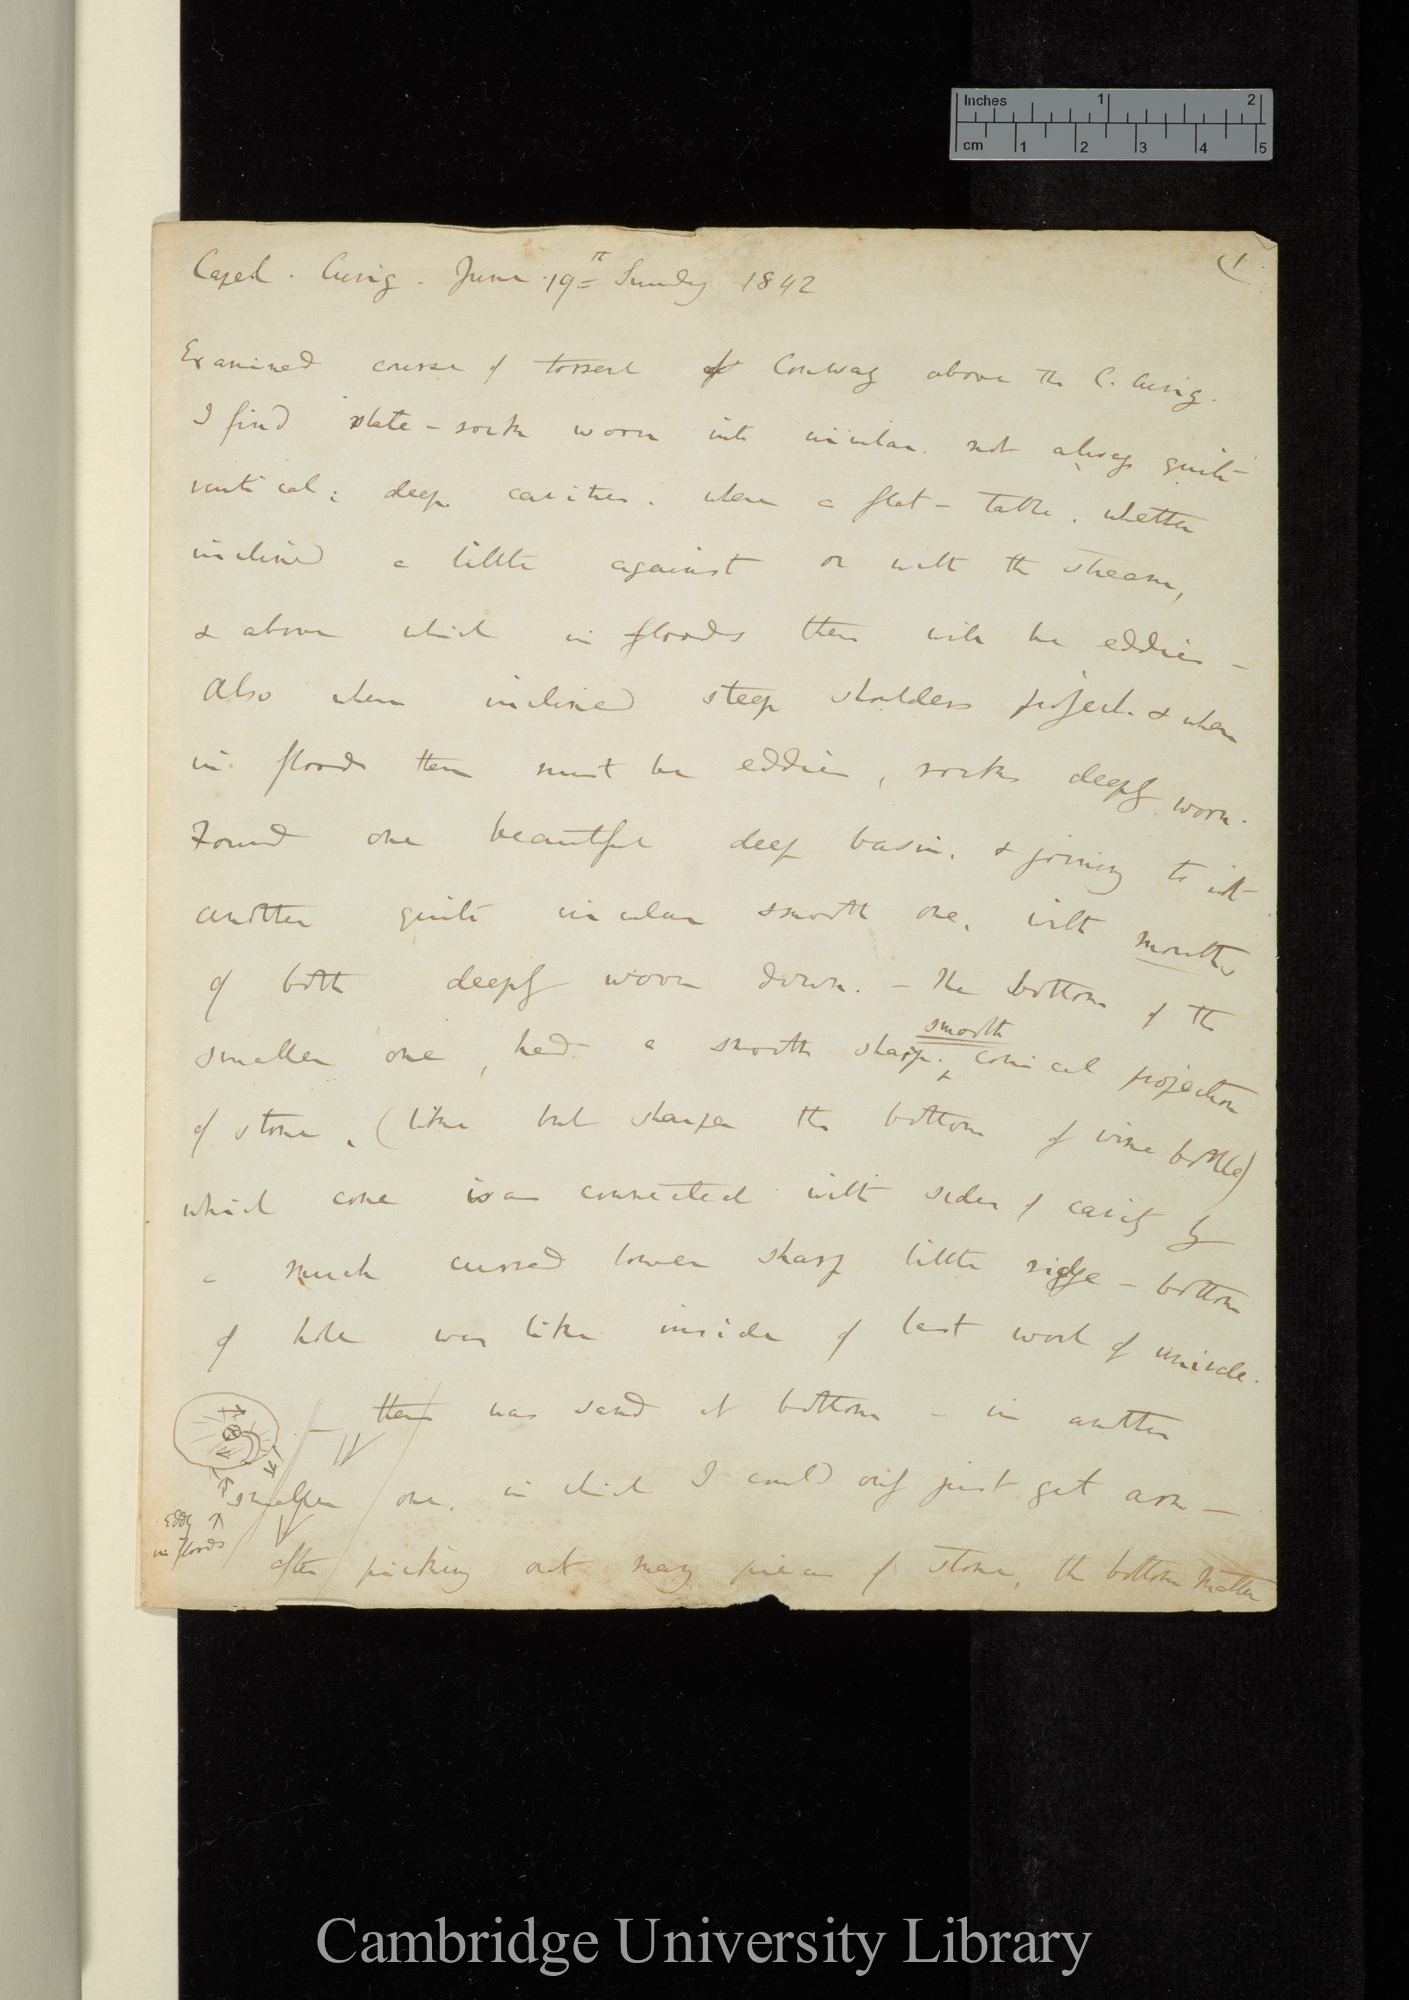 Inches 1 2
cm 1 2 3 4 5
(1
Capel. Curig. June 19th Sunday 1842
Examined course of torrent of Conway above the C. Curig.
I find slate-rock worn into circular. not always quite
vertical; deep cavities. when a flat-table, whether
inclined a little against or with the stream,
& above which in floods there will be eddies –
Also when inclined steep shoulders project. & when
in floods there must be eddies, rocks deeply worn.
Found one beautiful deep basin. & joining to it
another quite circular smooth one. with mouths
of both deeply worn down. – The bottom of the
smooth
smaller one, had a smooth sharp. conical projection
of stone, (like but sharper the bottom of wine bottle)
which cone is connected with sides of cavity by
a much curved lower sharp little ridge – bottom
of hole was like inside of last worl of univalve.
there was sand at bottom – in another
smaller one, in which I could only just get arm –
Eddy
in floods
after picking out many pieces of stone, the bottom matter
Cambridge University Library